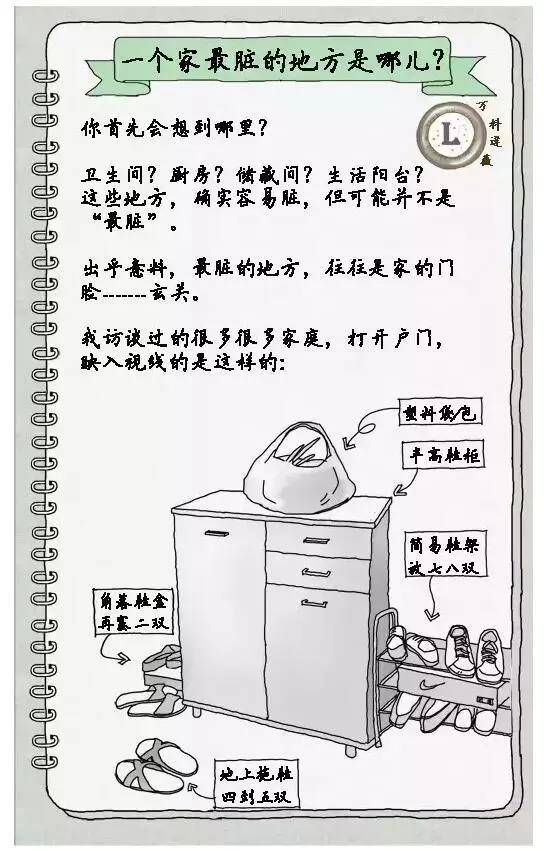 一个家最脏的地方是哪儿?
L
你首先会想到哪里?
卫生间? 厨房? 储藏间? 生活阳台?
这些地方, 确实容易脏, 但可能并不是
“最脏”。
出乎意料, 最脏的地方, 往往是家的门
脸-------玄关。
我访谈过的很多很多家庭, 打开户门,
映入视线的是这样的:
塑料袋/包
半高鞋柜
简易鞋架
放七八双
角落鞋盒
再塞二双
地上拖鞋
四到五双